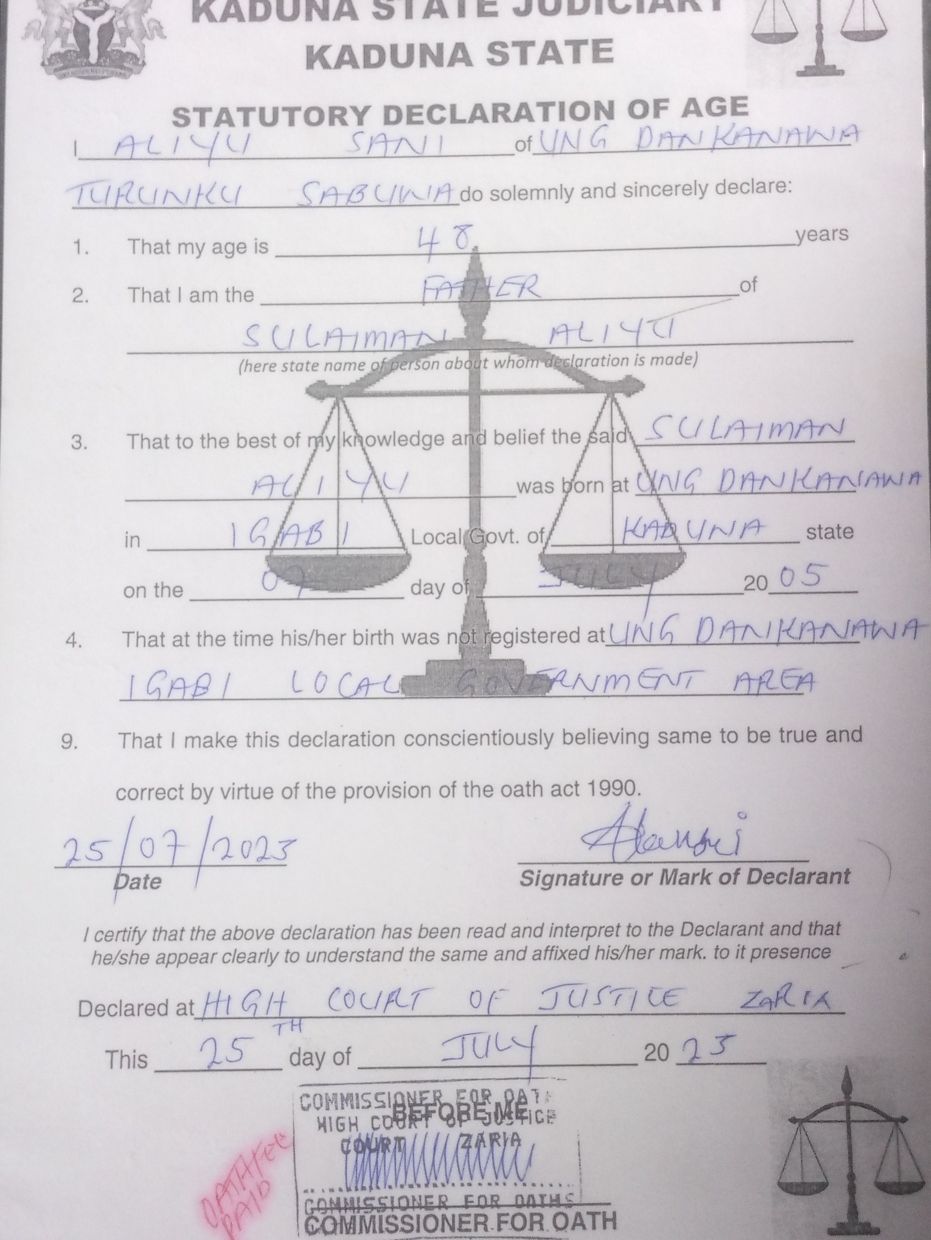 KADUNA STATE JUDICIARY
KADUNA STATE
STATUTORY DECLARATION OF AGE
I ALIYU SANI of UNG DANKANAWA
TURUNKU SABUWA do solemnly and sincerely declare:
1. That my age is 48 years
2. That I am the FATHER of
SULAIMAN ALIYU
(here state name of person about whom declaration is made)
3. That to the best of my knowledge and belief the said SULAIMAN
ALIYU was born at UNG DANKANAWA
in IGABI Local Govt. of KADUNA state
on the 07 day of JULY 2005
4. That at the time his/her birth was not registered at UNG DANKANAWA
IGABI LOCAL GOVERNMENT AREA
9. That I make this declaration conscientiously believing same to be true and
correct by virtue of the provision of the oath act 1990.
25/07/2023
Date
Signature or Mark of Declarant
I certify that the above declaration has been read and interpret to the Declarant and that
he/she appear clearly to understand the same and affixed his/her mark. to it presence
Declared at HIGH COURT OF JUSTICE ZARIA
This 25TH day of JULY 2023
COMMISSIONER FOR OATHS
BEFORE ME
HIGH COURT OF JUSTICE
COURT ZARIA
COMMISSIONER FOR OATHS
COMMISSIONER FOR OATH
OATH FEE
PAID